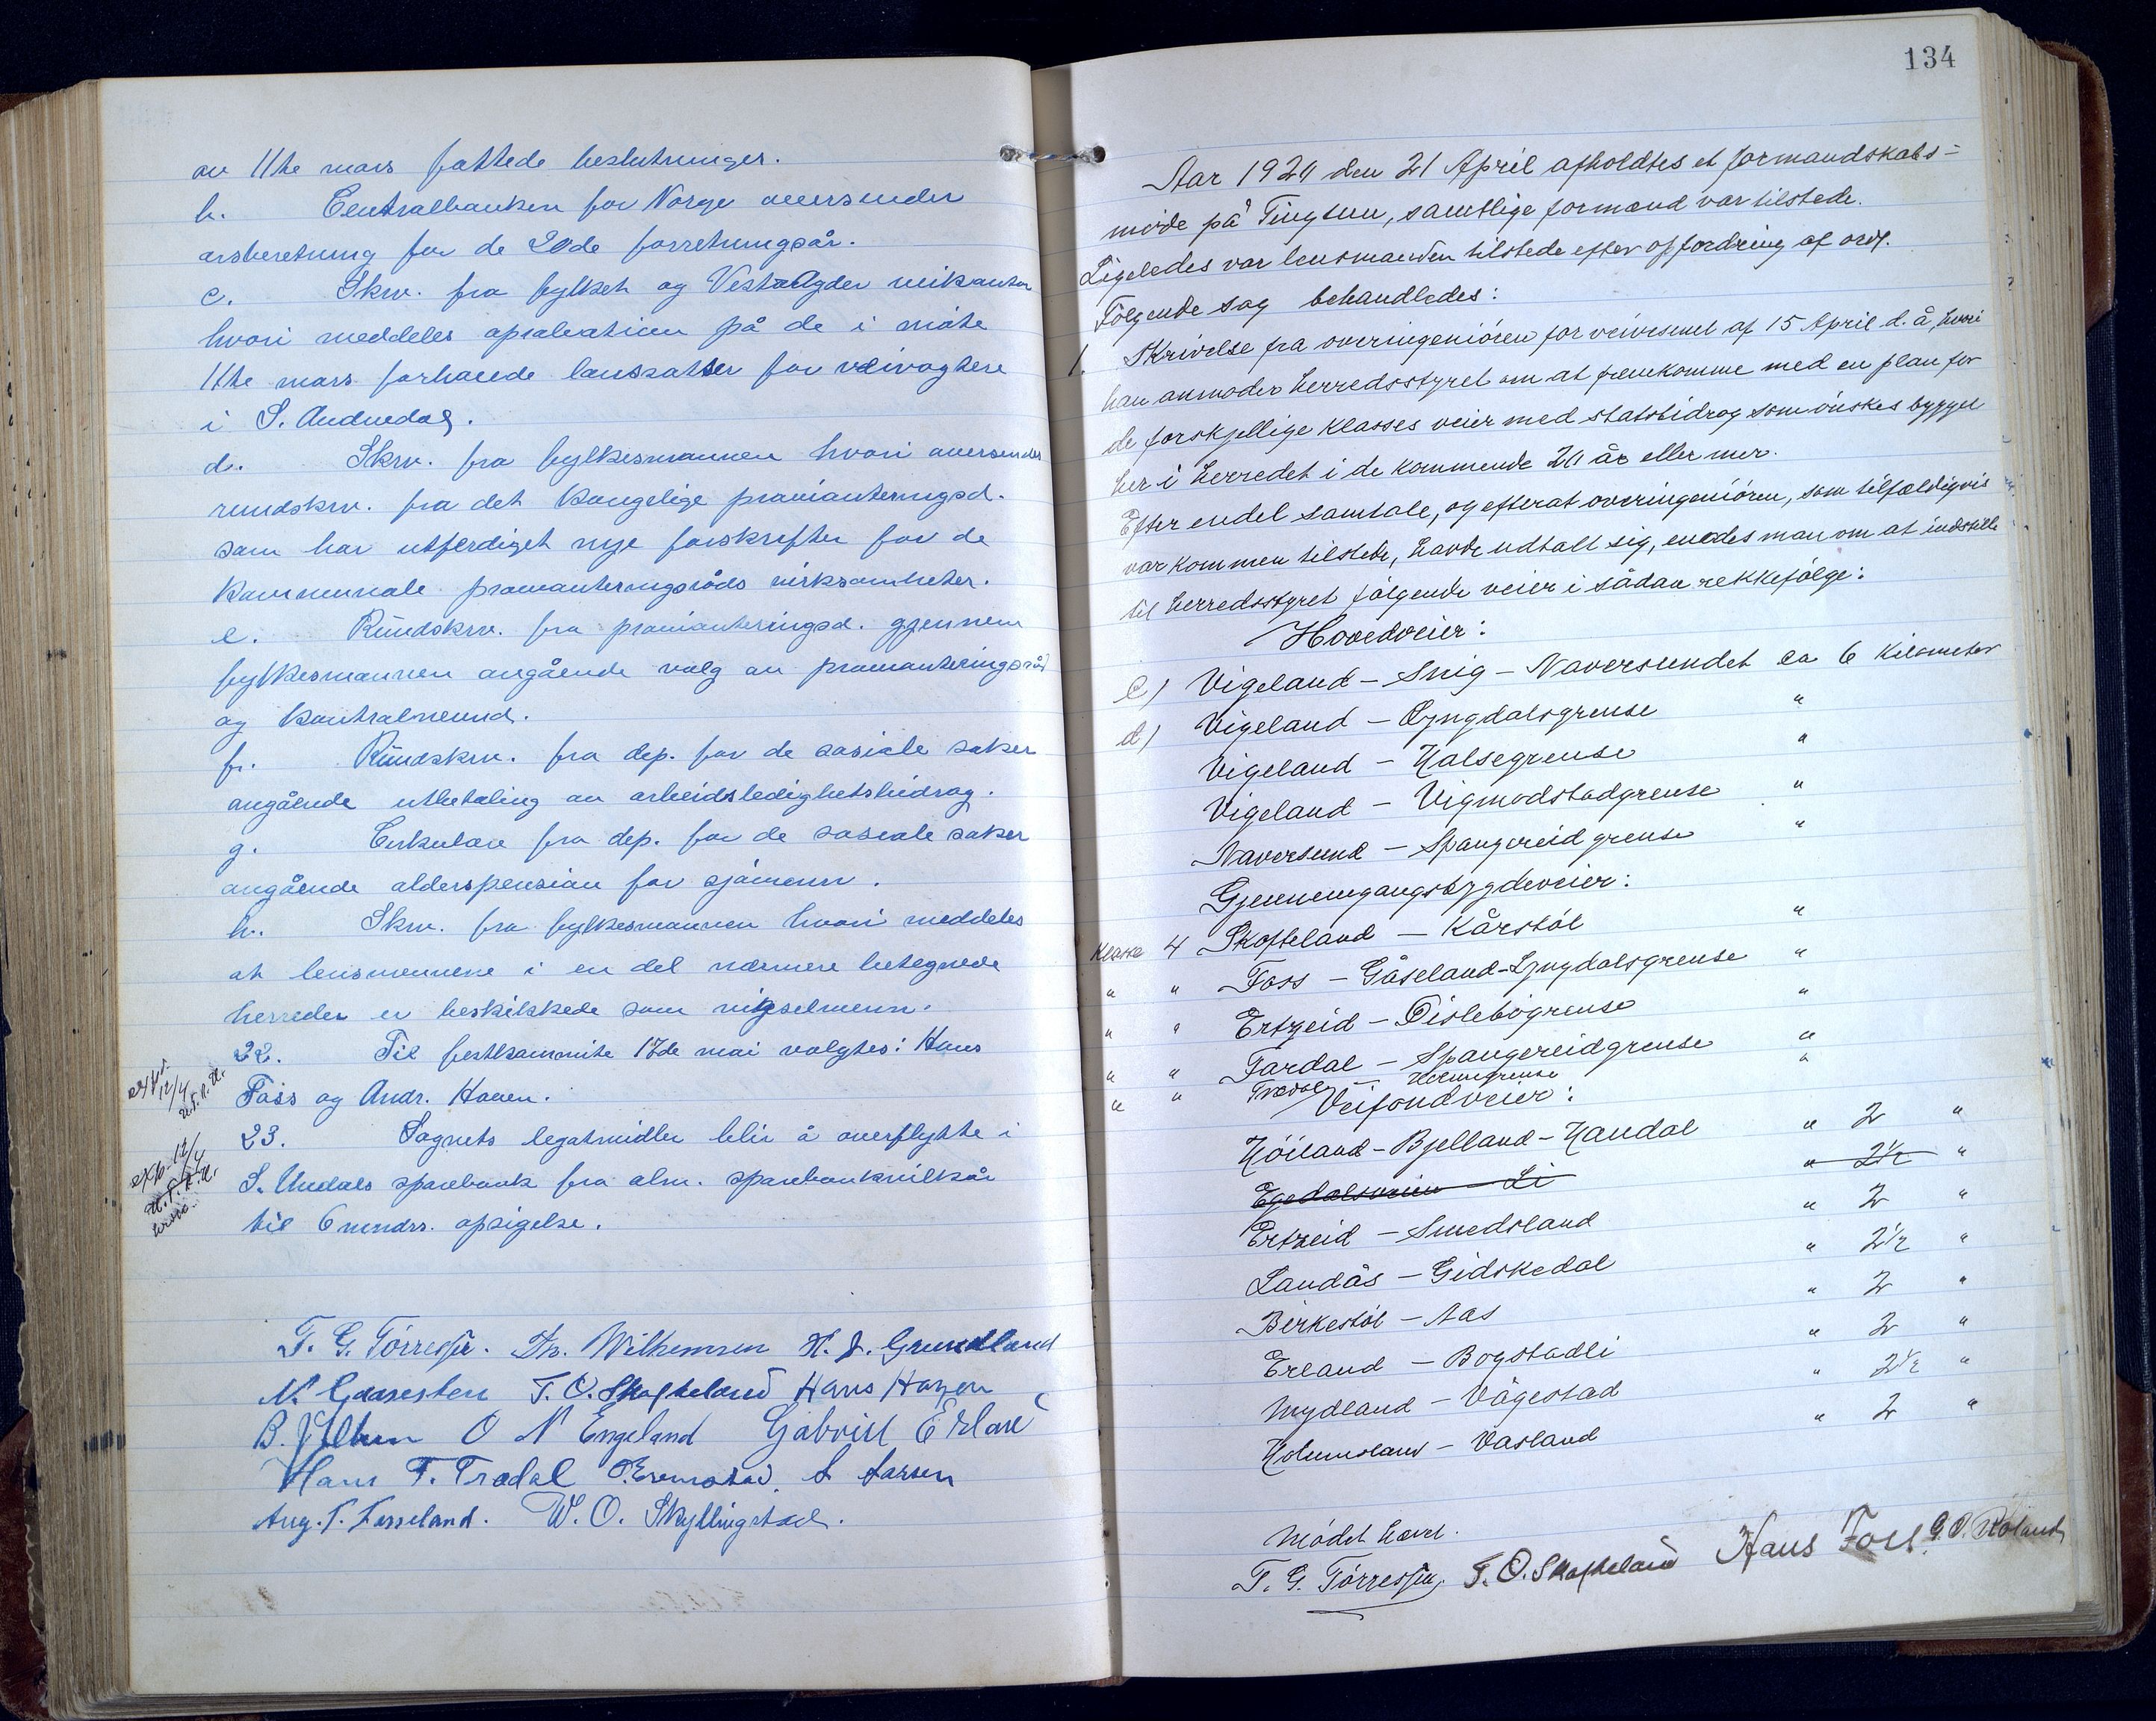 av 11te mars fattede beslutninger.
b. Centralbanken for Norge oversender
årsberetning for de 20de forretningsår.
c. Skriv. fra fylket og Vest-Agder veikontor
hvori meddeles aprobation på de i møte
11te mars forhøiede lønssatser for veivogtere
i S. Audnedal.
d. Skrv. fra fylkesmannen hvori oversendes
rundskrv. fra det kongelige provianteringsd.
som har utferdiget nye forskrifter for de
kommunale provianteringsråds virksomheter.
e. Rundskrv. fra provianteringsd. gjennem
fylkesmannen angående valg av provianteringsråd
og kontrolnevnd.
f. Rundskrv. fra dep. for de sosiale saker
angående utbetaling av arbeidsledighetsbidrag.
g. Cirkulære fra dep. for de sosiale saker
angående alderspension for sjømenn.
h. Skrv. fra fylkesmannen hvori meddeles
at lensmennene i en del nærmere betegnede
herreder er beskikkede som vigselmenn.
22. Til festkommite 17de mai valgtes: Hans
Foss og Andr. Hauen.
23. Sognets legatmidler blir å overflytte i
S. Undals sparebank fra alm. sparebankvilkår
til 6 mndrs. opsigelse.
T. G. Tórressen. Th. Wilhemsen H. J. Grundland
N. Gaaseston T. O. Skofteland Hans Hagen
B. O N Engeland Gabriel
Hans F. Trædal A Larsen
Aug. T. Fasseland. W. O. Skyllingstad.
134
Aar 1921 den 21 April afholdtes et formandskabs-
möde på Tingtun, samtlige formænd var tilstede.
Ligeledes var lensmanden tilstede efter opfordring af ordf.
Fölgende sag behandledes:
1. Skrivelse fra overingeniören for veivesenet af 15 April d. å, hvori
han anmoder herredsstyret om at fremkomme med en plan for
de forskjellige klasses veier med statsbidrag som önskes bygget
her i herredet i de kommende 20 år eller mer.
Efter endel samtale, og efterat overingeniören, som tilfældigvis
var kommen tilstede, havde udtalt sig, enedes man om at indstille
til herredsstyret fölgende veier i sådan rekkefölge:
Hovedveier:
c) Vigeland – Snig – Naversundet ca 6 kilometer
d) Vigeland – Lyngdalsgrense "
Vigeland – Halsegrense "
Vigeland – Vigmodstadgrense "
Naversund – Spangereid grense "
Gjennemgangsbygdeveier:
Klasse 4 Skofteland – Kårstöl "
" " Foss – Gåseland-Lyngdalsgrense "
" " Ertzeid – Tislebögrense "
" " Fardal – Spangereidgrense "
" " Trædal – Holumgrense "
Veifondveier:
Höiland – Bjelland – Haudal " 2 "
Egedalsveien – Li " 2½ "
Ertzeid – Smedsland " 2 "
Landås – Gidskedal " 2½ "
Birkestöl – Aas " 2 "
Erland – Bogstadli " 2 "
Mydland – Vågestad " 2½ "
Holumsland – Vasland " 2 "
Mödet hævet.
T. G. Tórressen. T. O. Skofteland Hans Foss. G. O. Röland